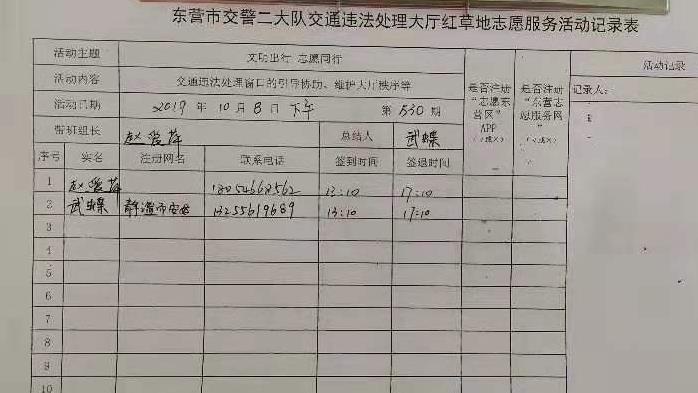 东营市交警二大队交通违法处理大厅红草地志愿服务活动记录表
活动主题 文明出行 志愿同行
活动内容 交通违法处理窗口的引导协助、维护大厅秩序等
活动日期 2019 年 10 月 8 日 下午 第 530 期
带班组长 赵爱萍 总结人 武蝶
序号 实名 注册网名 联系电话 签到时间 签退时间
是否注册
“志愿东
营区”
APP
(√或×)
是否注册
“东营志
愿服务网
”
(√或×)
活动记录
记录人:
1 赵爱萍 13:10 17:10
2 武蝶 13255619689 13:10 17:10
3
4
5
6
7
8
9
10